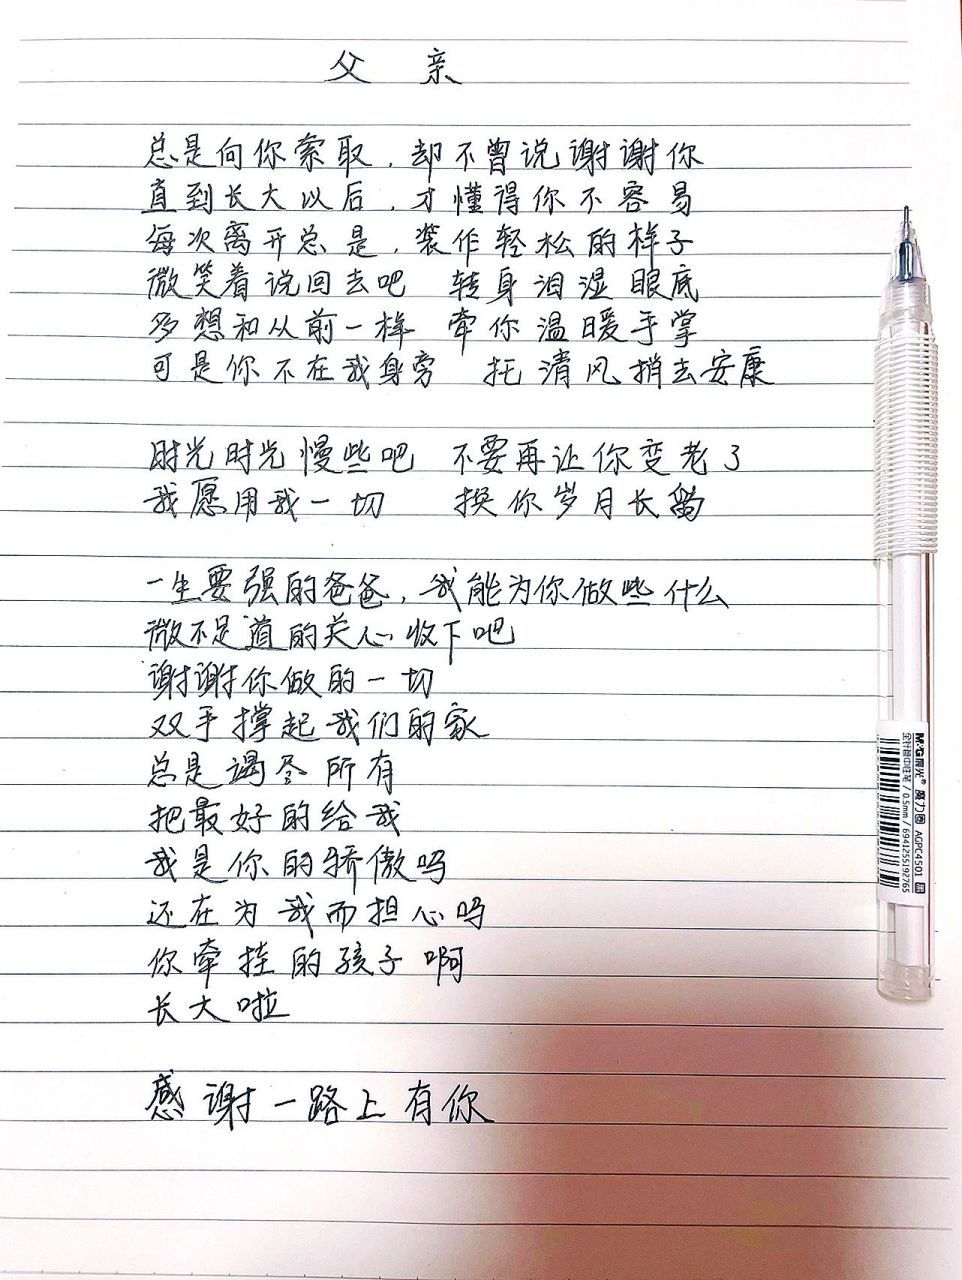 父 亲
总是向你索取，却不曾说谢谢你
直到长大以后，才懂得你不容易
每次离开总是，装作轻松的样子
微笑着说回去吧 转身泪湿眼底
多想和从前一样 牵你温暖手掌
可是你不在我身旁 托清风捎去安康
时光时光慢些吧 不要再让你变老了
我愿用我一切 换你岁月长留
一生要强的爸爸，我能为你做些什么
微不足道的关心收下吧
谢谢你做的一切
双手撑起我们的家
总是竭尽所有
把最好的给我
我是你的骄傲吗
还在为我而担心吗
你牵挂的孩子啊
长大啦
感谢一路上有你
M&G晨光® 魔力圈 AGPC4501 黑
全针管中性笔 / 0.5mm / 6941255192765